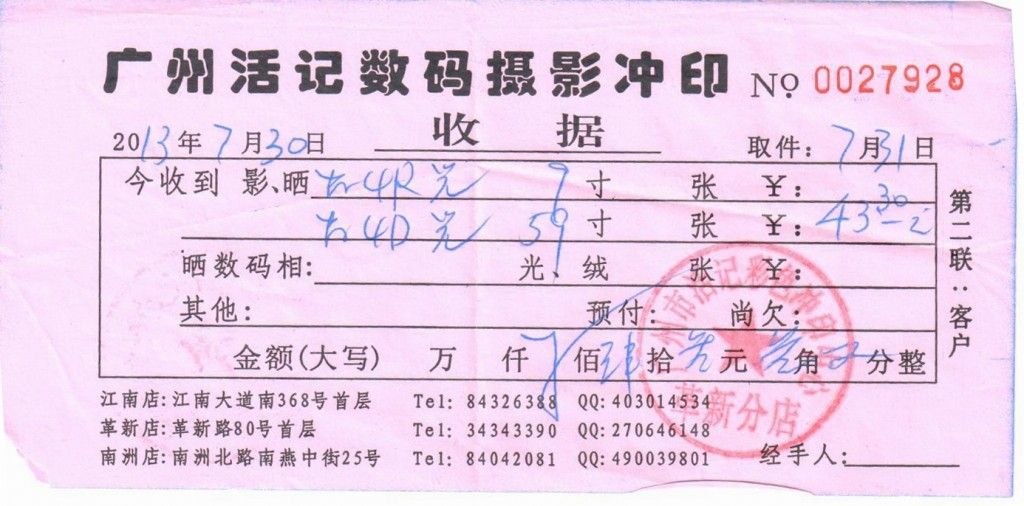 广州活记数码摄影冲印 No 0027928
收 据
2013年7月30日 取件: 7月31日
今收到 影、晒 4R 光 9 寸 张 ¥:
4D 光 59 寸 张 ¥: 43.30
晒数码相: 光、绒 张 ¥:
其他: 预付: 尚欠:
金额(大写) 万 仟 佰 肆 拾 元 角 分整
江南店:江南大道南368号首层 Tel: 84326388 QQ:403014534
革新店:革新路80号首层 Tel: 34343390 QQ:270646148
南洲店:南洲北路南燕中街25号 Tel: 84042081 QQ:490039801 经手人:
第二联:客户
州市活记彩色冲印中心
革新分店